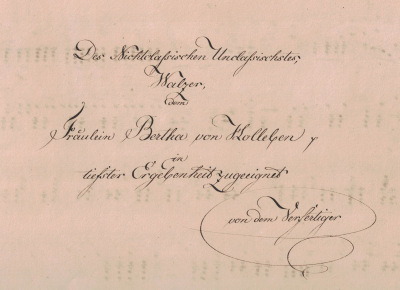 Des Nichtclaßischen Unclaßischstes,
Walzer,
dem
Fräulein Bertha von Holleben,
in
tiefster Ergebenheit zugeeignet
von dem Verfertiger